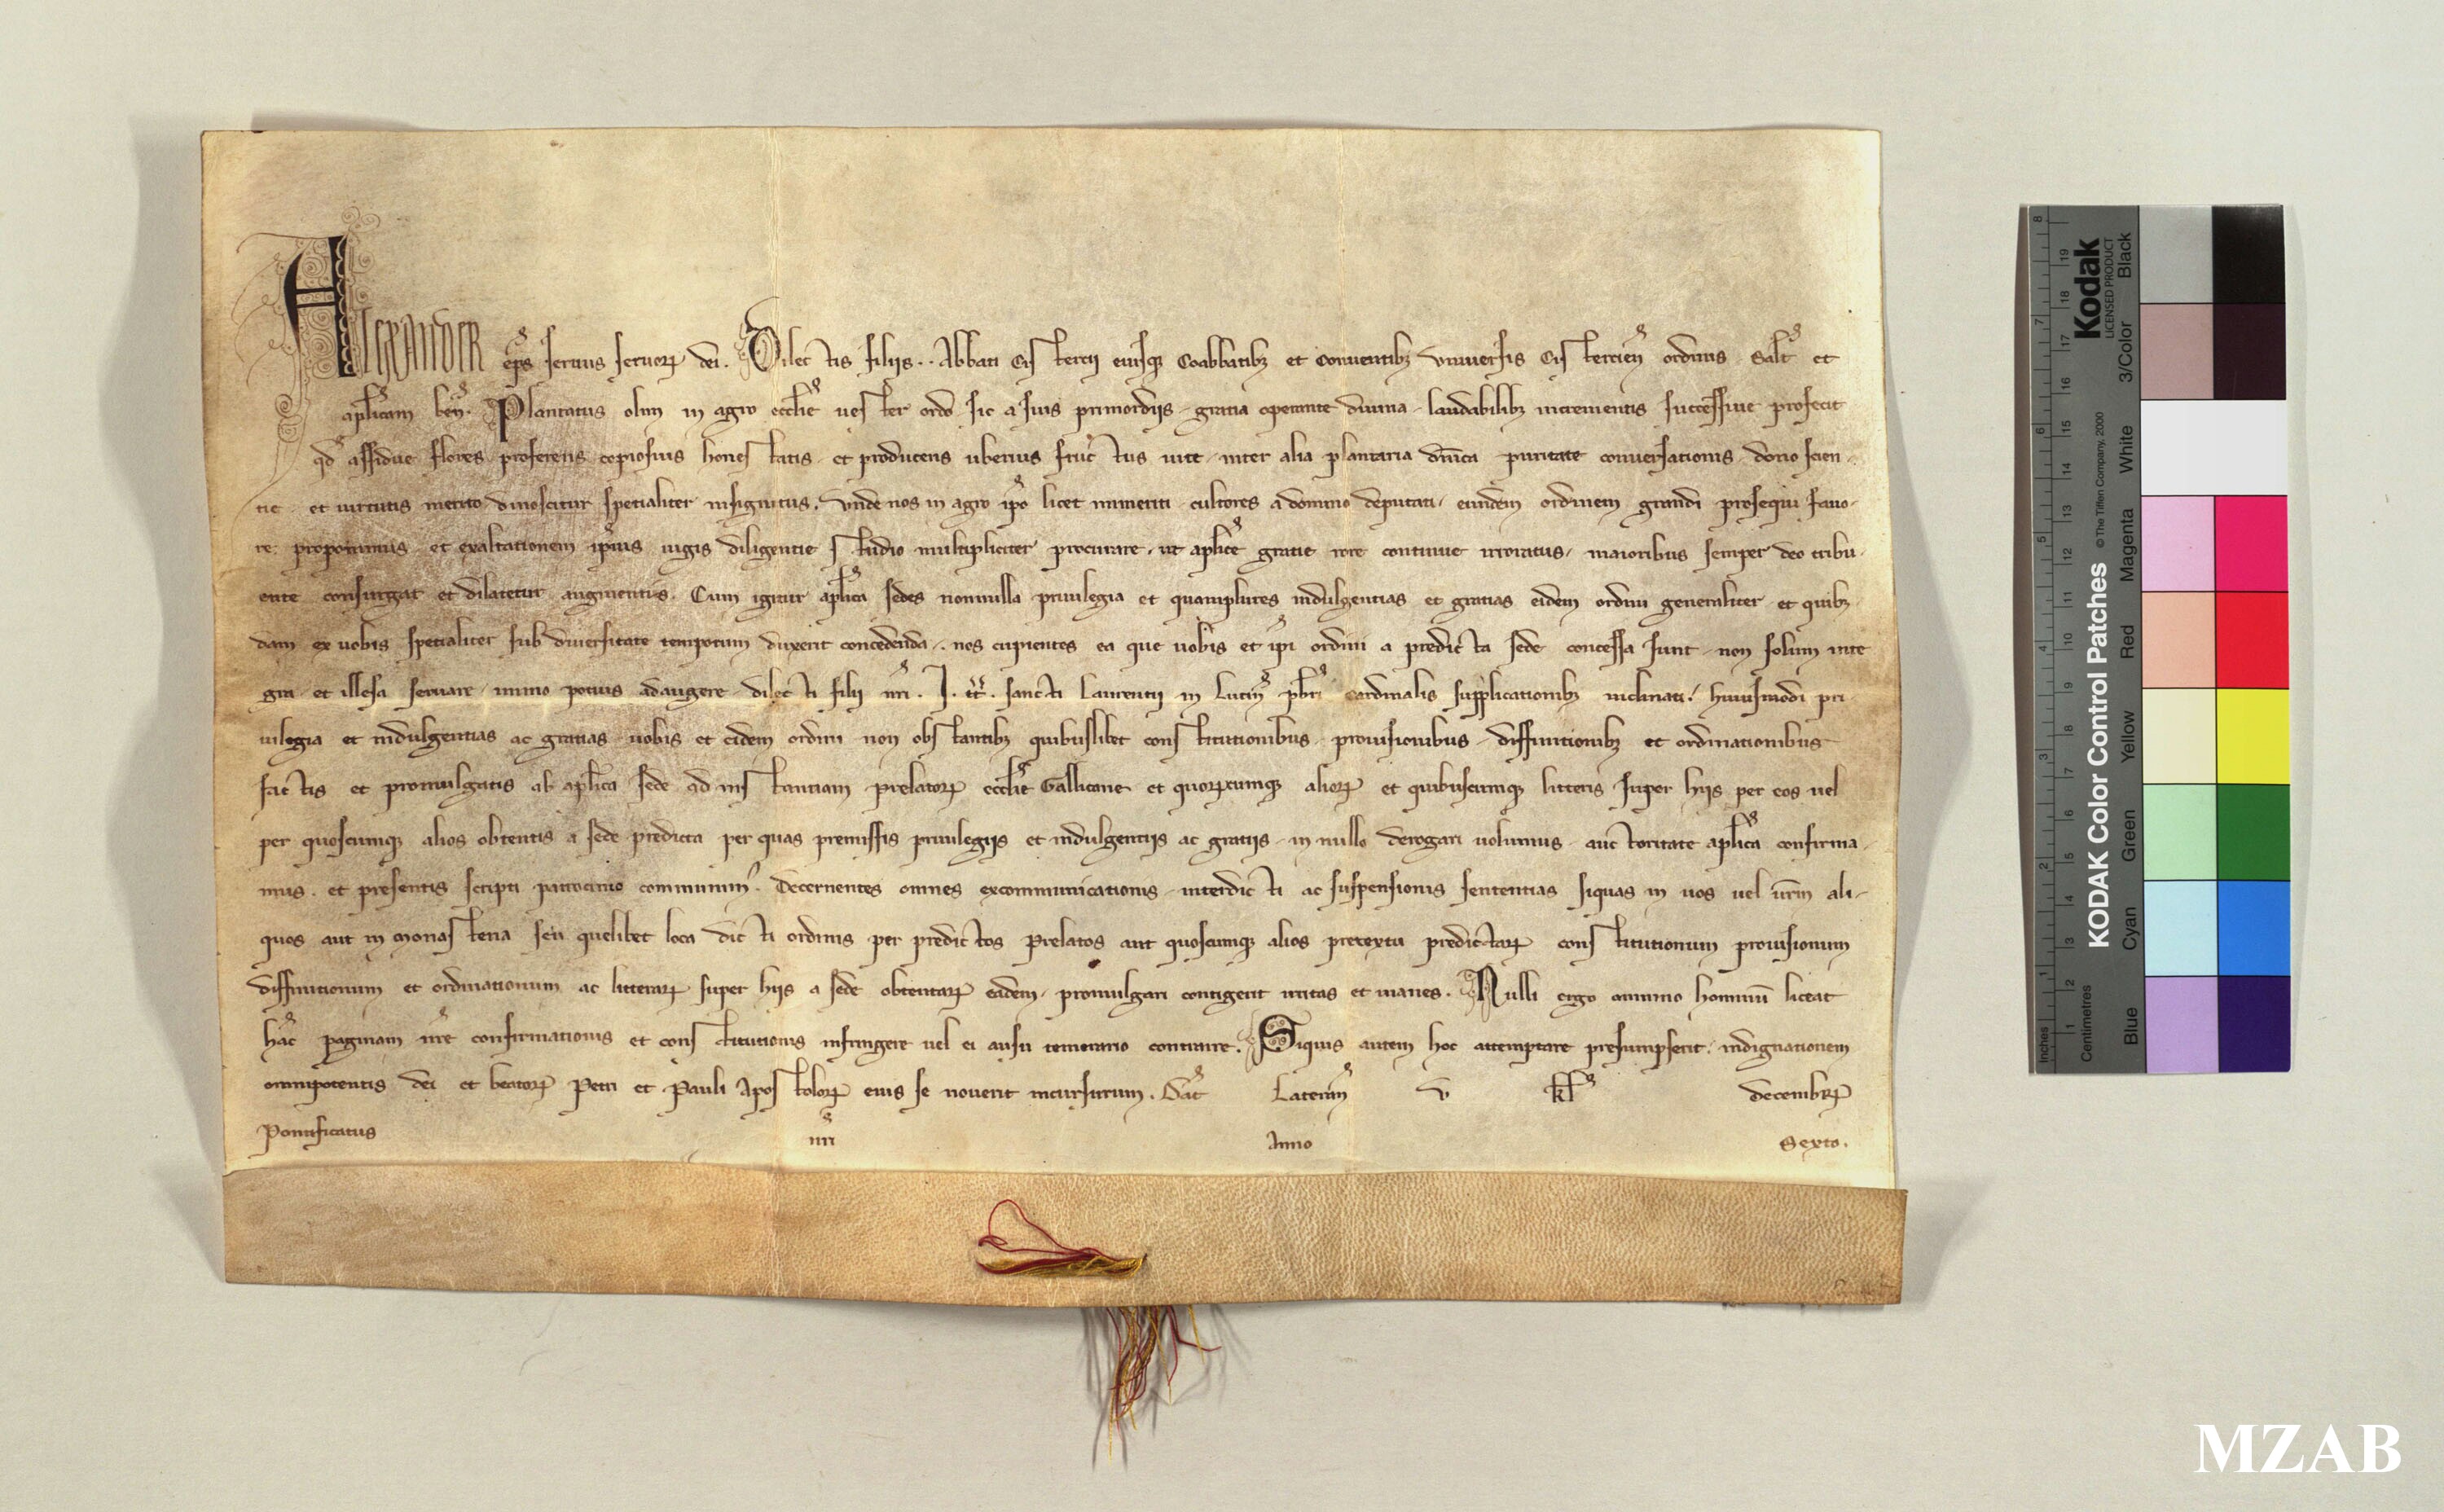 Alexander ep̄s seruus seruoꝝ dei. Dilectis filijs . . Abbati Cistercii eiusqꝫ Coabbatibꝫ et Conuentibꝫ vniuersis Cisterciēn ordinis Salt̄ et
aplicam ben̄. Plantatus olim in agro ecclīe uester ordo sic a suis primordijs gratia operante diuina laudabilibꝫ incrementis successiue profecit
qd̄ assidue flores proferens copiosius honestatis et producens uberius fructus uite inter alia plantaria dn̄ica puritate conuersationis dono scien-
tie et uirtutis merito dinoscitur spetialiter insignitus. Vnde nos in agro ip̄o licet inmeriti cultores a domino deputati, eundem ordinem grandi prosequi fauo-
re proponimus et exaltationem ip̄ius iugis diligentie studio multipliciter procurare, ut aplice gratie rore continue irroratus, maioribus semper deo tribu-
ente consurgat et dilatetur augmentis. Cum igitur aplica sedes nonnulla priuilegia et quamplures indulgentias et gratias eidem ordini generaliter et quibꝫ-
dam ex uobis spetialiter sub diuersitate temporum duxerit concedenda, nos cupientes ea que uobis et ip̄i ordini a predicta sede concessa sunt non solum inte
gra et illesa seruare immo potius adaugere dilecti filii nr̄i . J . tt̄ . sancti Laurentii in Lucin̄ pbr̄i Cardinalis supplicationibꝫ inclinati, huiusmodi pri-
uilegia et indulgentias ac gratias uobis et eidem ordini non obstantibꝫ quibuslibet constitutionibus prouisionibus diffinitionibꝫ et ordinationibus
factis et promulgatis ab aplica sede ad instantiam prelatoꝝ ecclīe Gallicane et quoꝝcumqꝫ alioꝝ et quibuscumqꝫ litteris super hijs per eos uel
per quoscumqꝫ alios obtentis a sede predicta per quas premissis priuilegijs et indulgentijs ac gratijs in nullo derogari uolumus auctoritate aplica confirma-
mus et presentis scripti patrocinio communim̄. Decernentes omnes excommunicationis interdicti ac suspensionis sententias siquas in uos uel ur̄m ali-
quos aut in monasteria seu quelibet loca dicti ordinis per predictos Prelatos aut quoscumqꝫ alios pretextu predictaꝝ constitutionum prouisionum
diffinitionum et ordinationum ac litteraꝝ super hijs a sede obtentaꝝ eadem, promulgari contigerit irritas et inanes. Nulli ergo omnino hominū liceat
hāc paginam nr̄e confirmationis et constitutionis infringere uel ei ausu temerario contraire. Siquis autem hoc attemptare presumpserit, indignationem
omnipotentis dei et beatoꝝ Petri et Pauli Apostoloꝝ eius se nouerit incursurum. Dat̄ Lateran̄ v kl̄ decembꝝ
Pontificatus nr̄i Anno Sexto.
Kodak
LICENSED PRODUCT
KODAK Color Control Patches © The Tiffen Company, 2000
Blue Cyan Green Yellow Red Magenta White 3/Color Black
Inches 1 2 3 4 5 6 7 8
Centimetres 1 2 3 4 5 6 7 8 9 10 11 12 13 14 15 16 17 18 19
MZAB